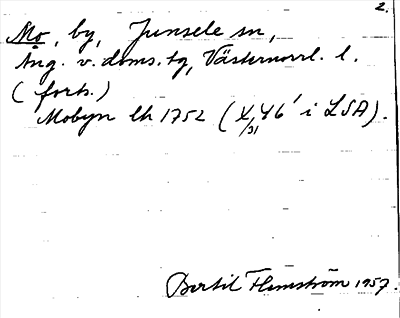 2.
Mo, by, Junsele sn,
Ång. v. doms. tg, Västernorrl. l.
(forts.)
Mobyn lh 1752 (X/31 46' i LSA).
Bertil Flemström 1957.